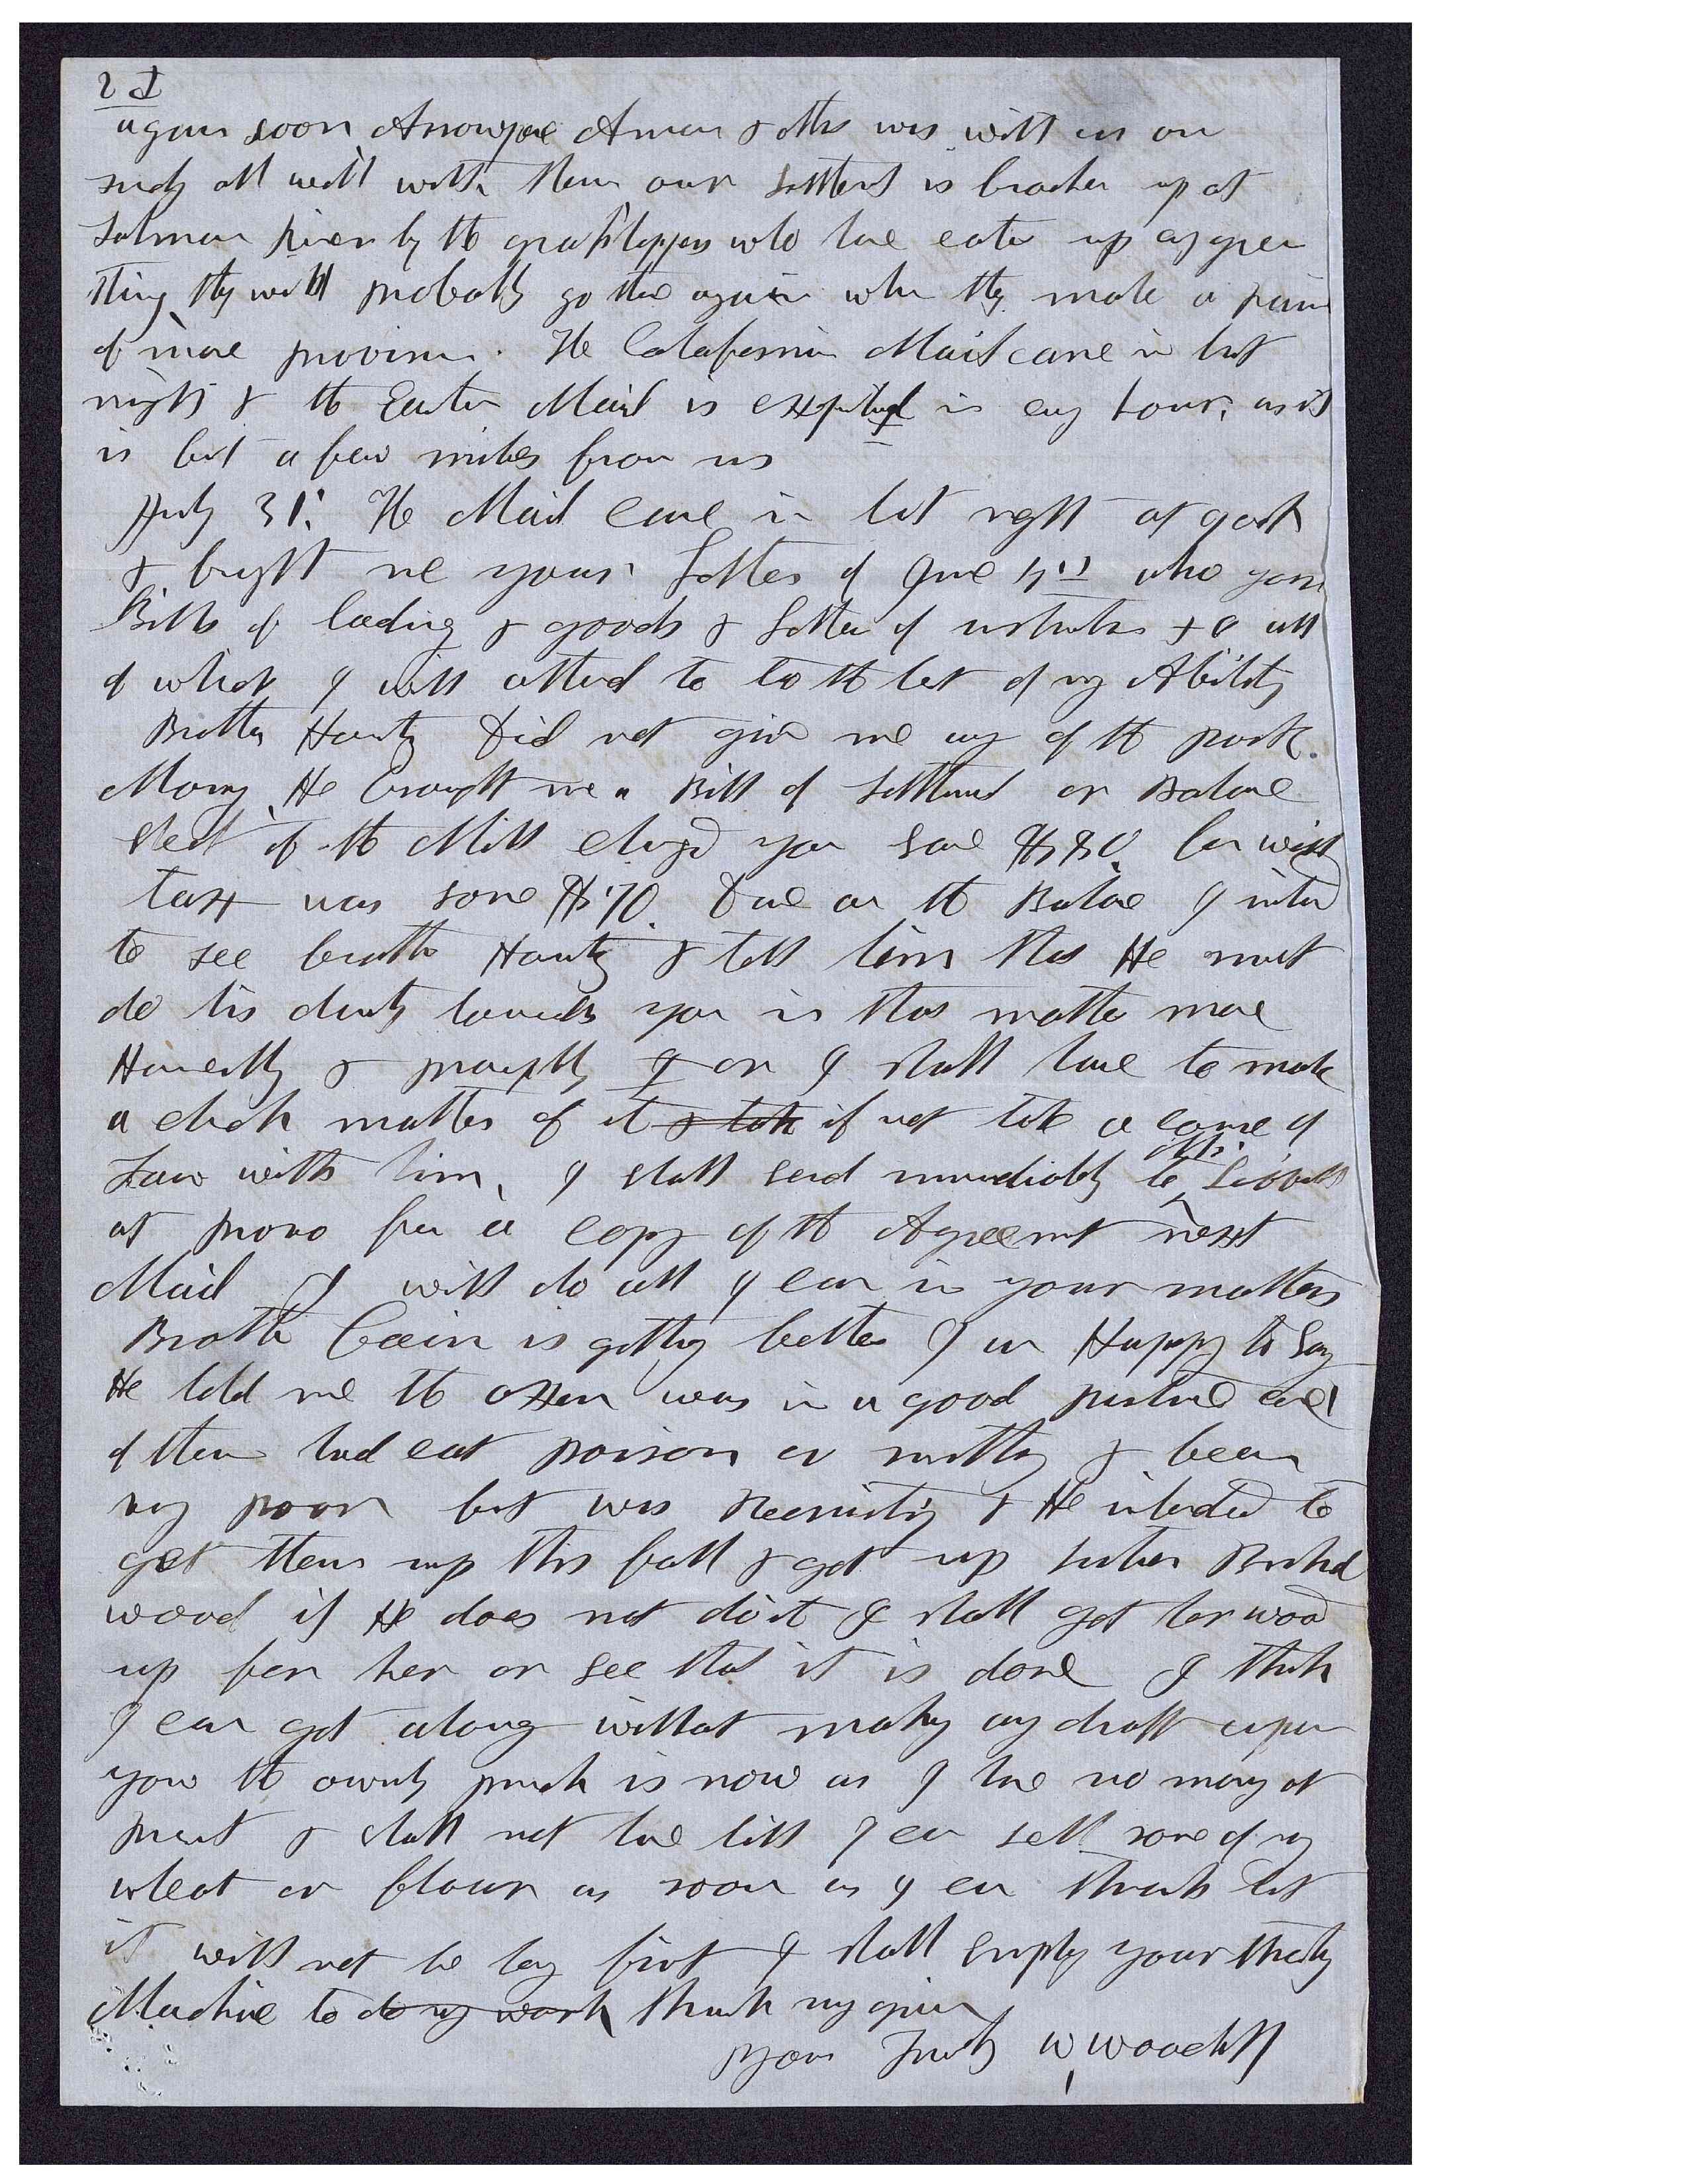 2d
again soon Arrowpene Aman & others was with us on
sunday all well with them our settlement is broaken up at
Salmon River by the grasshoppers who have eaten up evry green
thing they will probably go there again when they make a raise
of more provision. The Calafornia Mail came in last
night & the Eastern Mail is expected in evry hour, as it
is but a few miles from us
July 31st The Mail came in last night at 9 oclock
& brought me your Letter of June with your
Bills of lading & goods & Letter of instructions &c all
of which I will attend to to the best of my Ability
Brother Hanks did not give me any of the
Money, He brought me a Bill of settlement or Balance
sheet of the Mill charged you some $80. for
tax was some $70. due on the Balance I intend
to see brother Hanks & tell him that He must
do his duty towards you in this matter more
Honestly & promptly or I shall have to make
a church matter of it & take if not take a course of
Law with him, I shall send immediately to at
at provo for a copy of the Agreement next
Mail I will do all I can in your matters
Brother Cain is getting better I am Happy to say
He told me the oxen was in a good pasture one
of them had eat poison or something & been
very poor but was recruiting & He intended to
get them up this fall & get up sister
wood if He does not do it I shall get her wood
up for her or see that it is done I think
I can get along without making any draft upon
you the County purch is now as I have no money at
present & shall not have till I can sell some of my
wheat or flour as soon as I can thrash but
it will not be long first I shall employ your thrashing
Machine to do my work thrash my grain
Yours Truly W, Woodruff